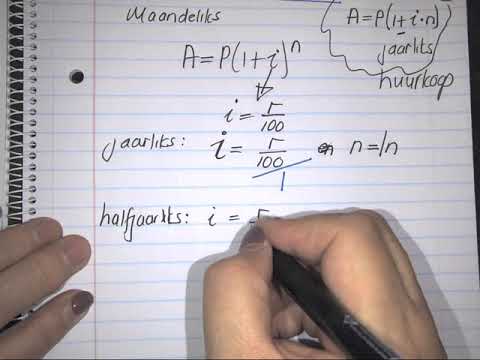 Maandeliks
A=P(1+i·n)
jaarliks
huurkoop
A=P(1+i)^n
i = r/100
jaarliks: i = r/100 /1 en n=1n
halfjaarliks: i = r